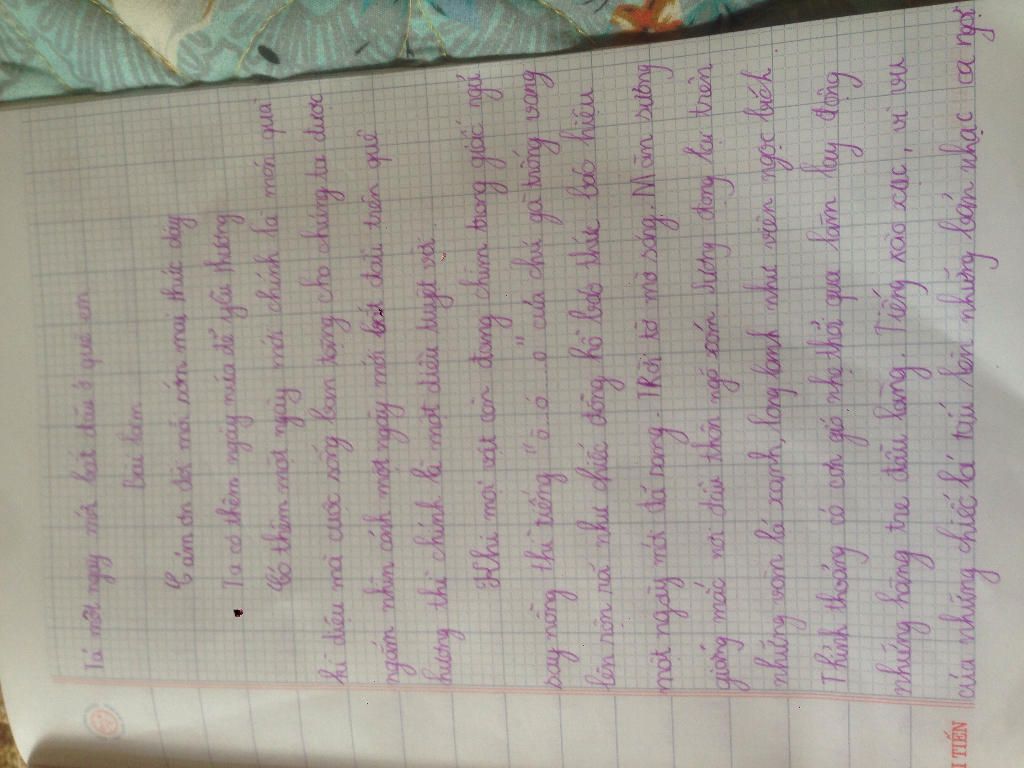 Tả một ngày mới bắt đầu ở quê em
Bài làm
Cảm ơn đời mỗi sớm mai thức dậy
Ta có thêm ngày nữa để yêu thương
Có thêm một ngày mới chính là món quà
kì diệu mà cuộc sống ban tặng cho chúng ta được
ngắm nhìn cảnh một ngày mới bắt đầu trên quê
hương thì chính là một điều tuyệt vời.
Khi mọi vật còn đang chìm trong giấc ngủ
say nồng thì tiếng "ò...ó......o" của chú gà trống vang
lên rộn rã như chiếc đồng hồ báo thức báo hiệu
một ngày mới đã rạng. Trời tờ mờ sáng. Màn sương
giống mắc nơi đầu thôn ngõ xóm sương đọng lại trên
những vòm lá xanh, long lanh như viên ngọc bích
Thỉnh thoảng có cơn gió nhẹ thổi qua làm lay động
những hàng tre đầu làng. Tiếng xào xạc, vi vu
của những chiếc lá tấu lên những bản nhạc ca ngợi
I TIẾN